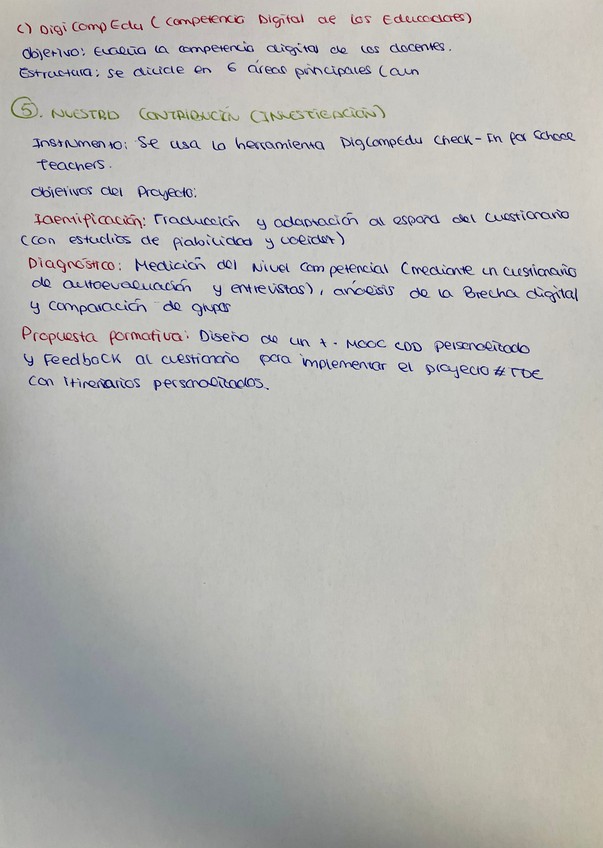 c) DigiCompEdu (Competencia Digital de los Educadores)
Objetivo: Evalúa la competencia digital de los docentes.
Estructura: se divide en 6 áreas principales (aun
5. NUESTRA CONTRIBUCIÓN (INVESTIGACIÓN)
Instrumento: Se usa la herramienta DigCompEdu Check-In for School
Teachers.
Objetivos del Proyecto:
Identificación: Traducción y adaptación al español del cuestionario
(con estudios de fiabilidad y validez)
Diagnóstico: Medición del Nivel competencial (mediante un cuestionario
de autoevaluación y entrevistas), análisis de la Brecha digital
y comparación de grupos
Propuesta formativa: Diseño de un t-MOOC CDD personalizado
y Feedback al cuestionario para implementar el proyecto #TDE
con itinerarios personalizados.